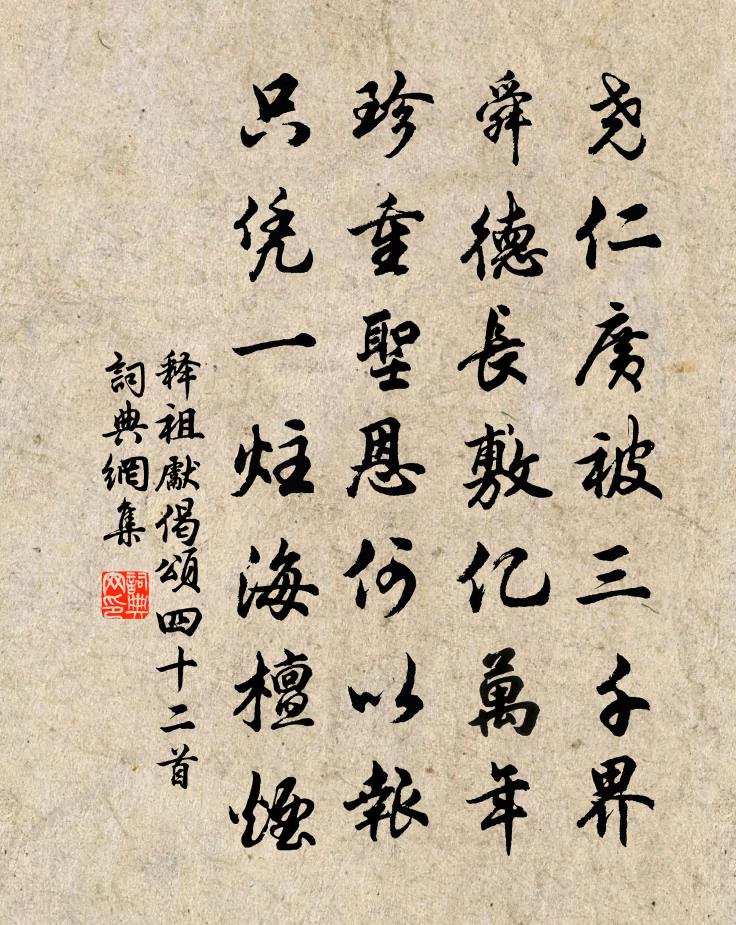 尧仁广被三千界
舜德長敷亿萬年
珍重聖恩何以報
只凭一炷海檀煙
释祖獻偈頌四十二首
詞典網集
詞典网印